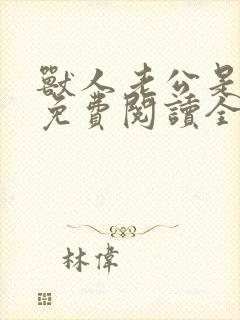 獸人老公是
免費閱讀全
林偉